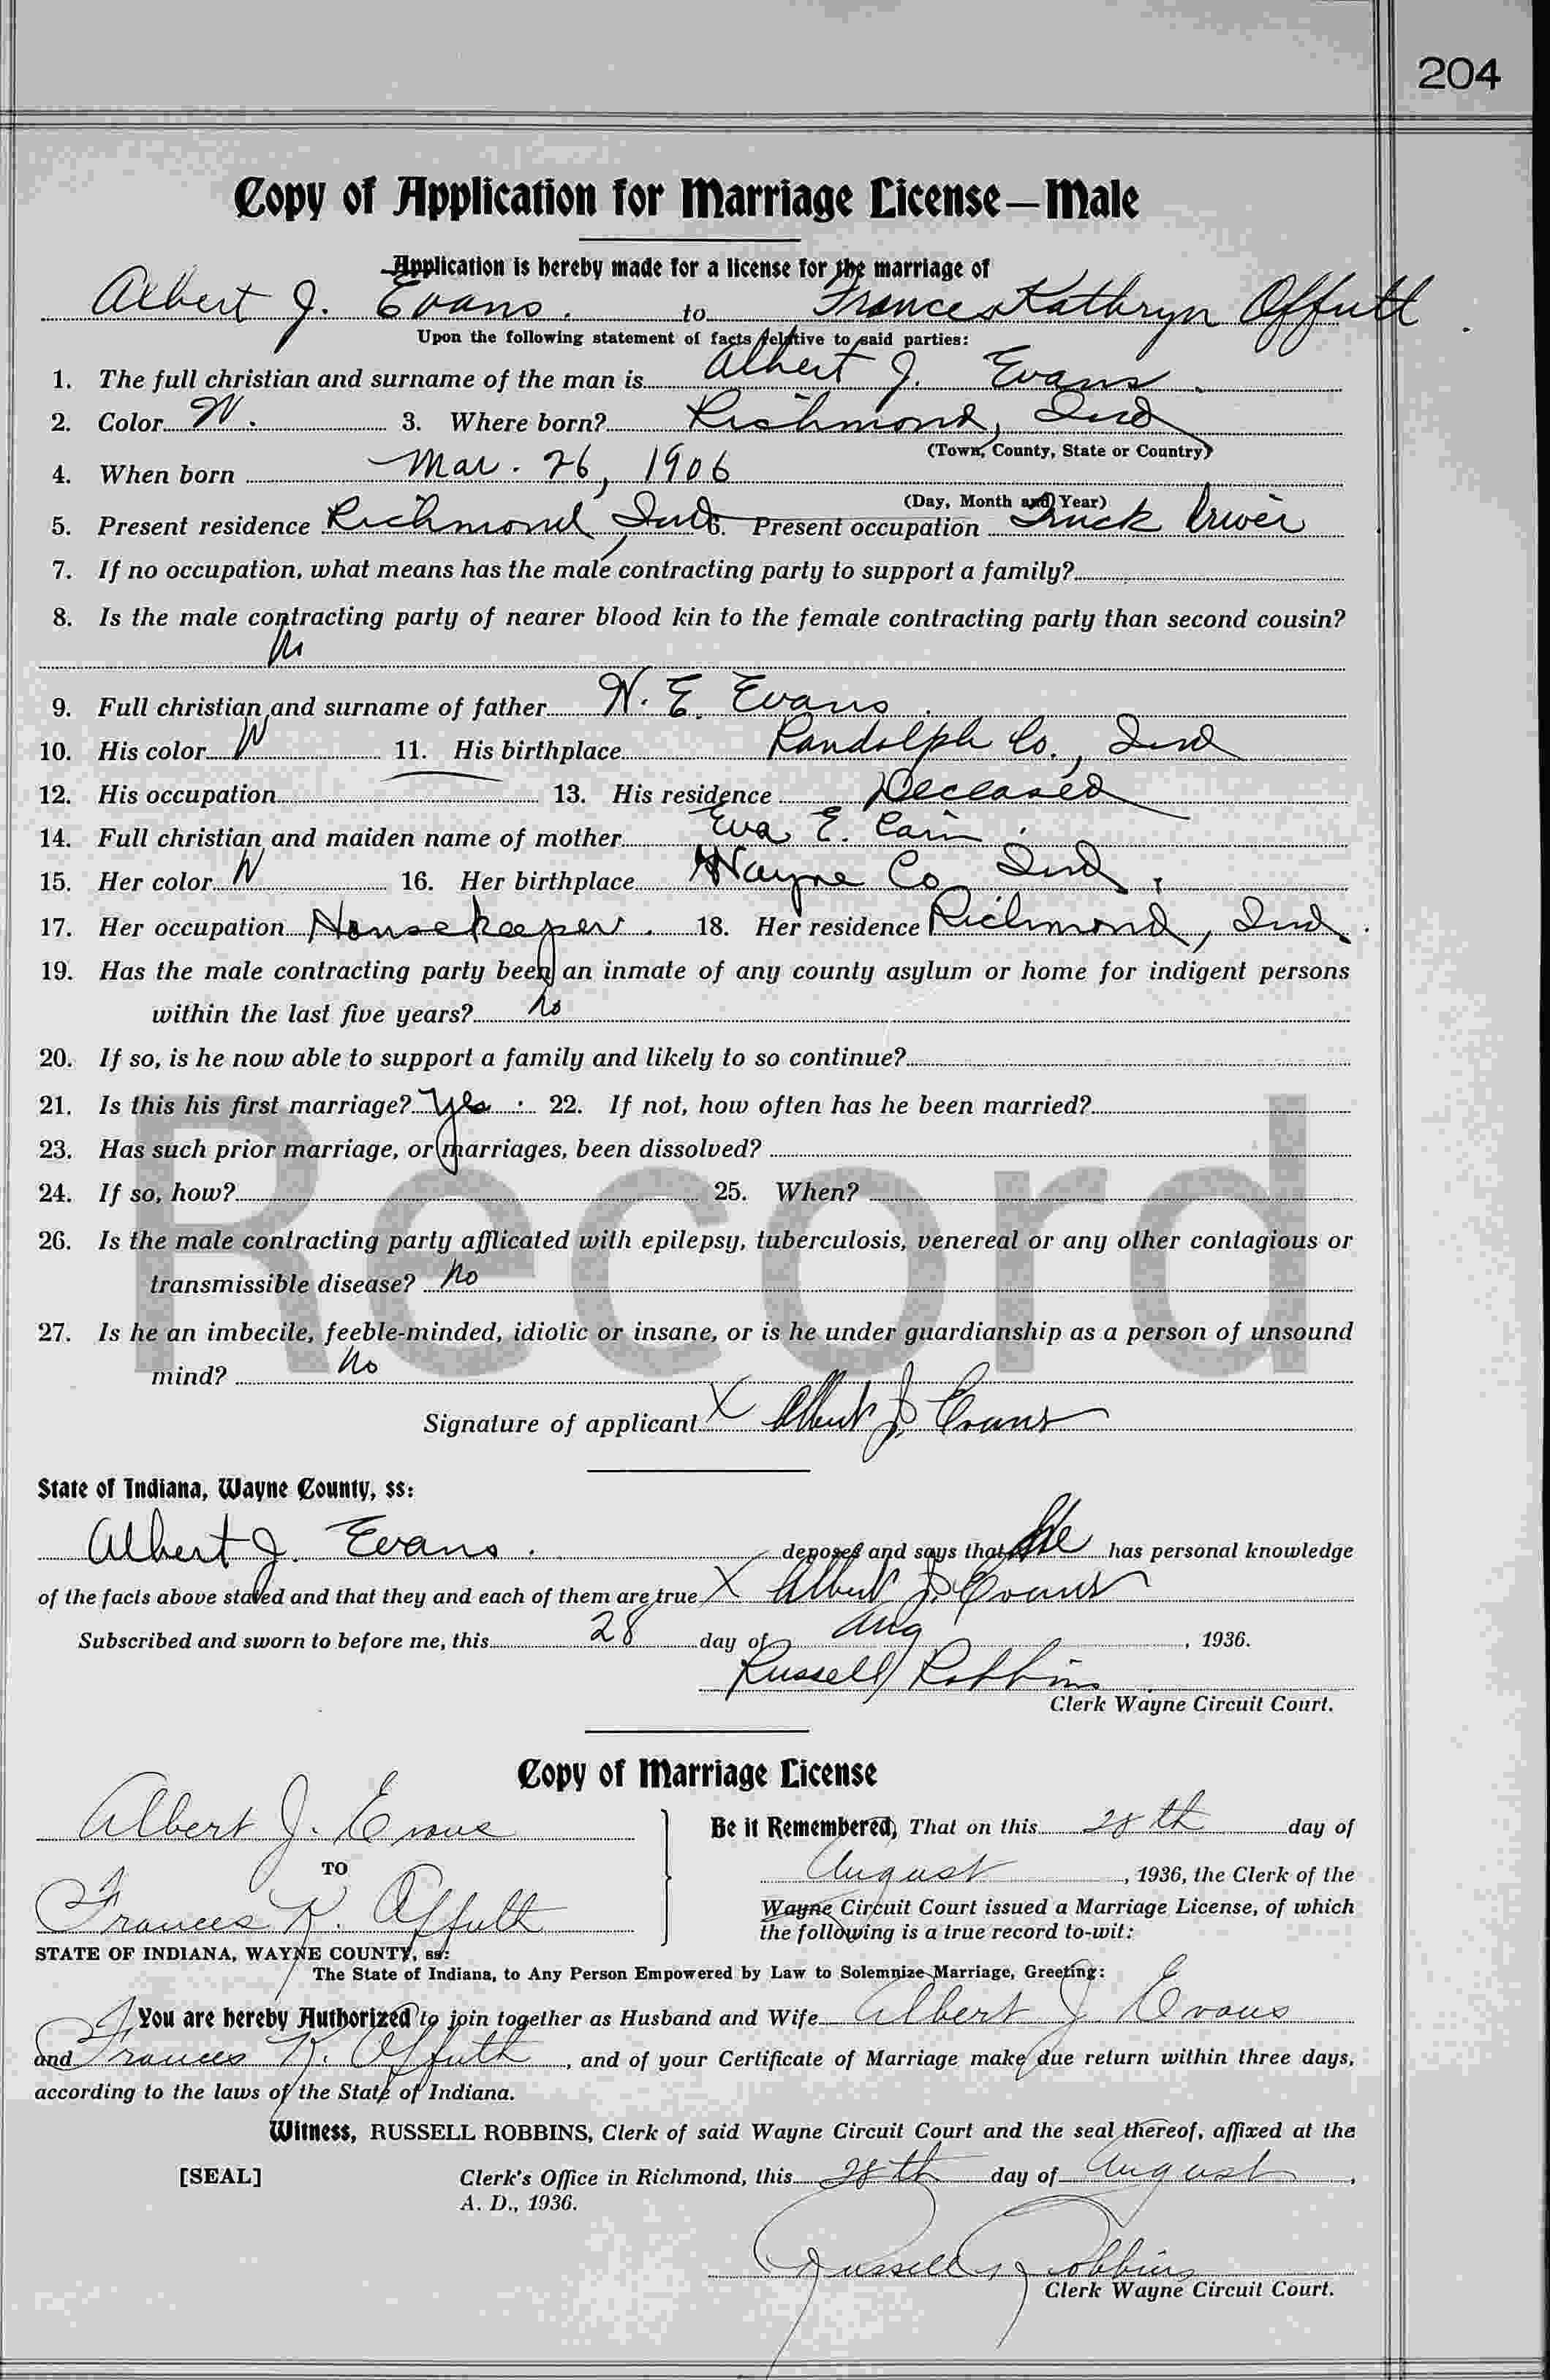 204
Copy of Application for Marriage License—Male
Application is hereby made for a license for the marriage of
Albert J. Evans. to Frances Kathryn Offutt.
Upon the following statement of facts relative to said parties:
1. The full christian and surname of the man is Albert J. Evans.
2. Color W. 3. Where born? Richmond, Ind
(Town, County, State or Country)
4. When born Mar. 26, 1906
(Day, Month and Year)
5. Present residence Richmond, Ind. 6. Present occupation Truck Driver
7. If no occupation, what means has the male contracting party to support a family?
8. Is the male contracting party of nearer blood kin to the female contracting party than second cousin?
No
9. Full christian and surname of father W. E. Evans.
10. His color W 11. His birthplace Randolph Co., Ind
12. His occupation 13. His residence Deceased
14. Full christian and maiden name of mother Eva E. Cain.
15. Her color W 16. Her birthplace Wayne Co Ind.
17. Her occupation Housekeeper. 18. Her residence Richmond, Ind.
19. Has the male contracting party been an inmate of any county asylum or home for indigent persons
within the last five years? no
20. If so, is he now able to support a family and likely to so continue?
21. Is this his first marriage? yes. 22. If not, how often has he been married?
23. Has such prior marriage, or marriages, been dissolved?
24. If so, how? 25. When?
26. Is the male contracting party afflicated with epilepsy, tuberculosis, venereal or any other contagious or
transmissible disease? no
27. Is he an imbecile, feeble-minded, idiotic or insane, or is he under guardianship as a person of unsound
mind? no
Record
Signature of applicant X Albert J. Evans
State of Indiana, Wayne County, ss:
Albert J. Evans. deposes and says that he has personal knowledge
of the facts above stated and that they and each of them are true X Albert J. Evans
Subscribed and sworn to before me, this 28 day of Aug, 1936.
Russell Robbins
Clerk Wayne Circuit Court.
Copy of Marriage License
Albert J. Evans
TO
Frances K. Offutt
Be it Remembered, That on this 28th day of
August, 1936, the Clerk of the
Wayne Circuit Court issued a Marriage License, of which
the following is a true record to-wit:
STATE OF INDIANA, WAYNE COUNTY, ss:
The State of Indiana, to Any Person Empowered by Law to Solemnize Marriage, Greeting:
You are hereby Authorized to join together as Husband and Wife Albert J Evans
and Frances K. Offutt, and of your Certificate of Marriage make due return within three days,
according to the laws of the State of Indiana.
Witness, RUSSELL ROBBINS, Clerk of said Wayne Circuit Court and the seal thereof, affixed at the
[SEAL] Clerk's Office in Richmond, this 28th day of August,
A. D., 1936.
Russell Robbins
Clerk Wayne Circuit Court.